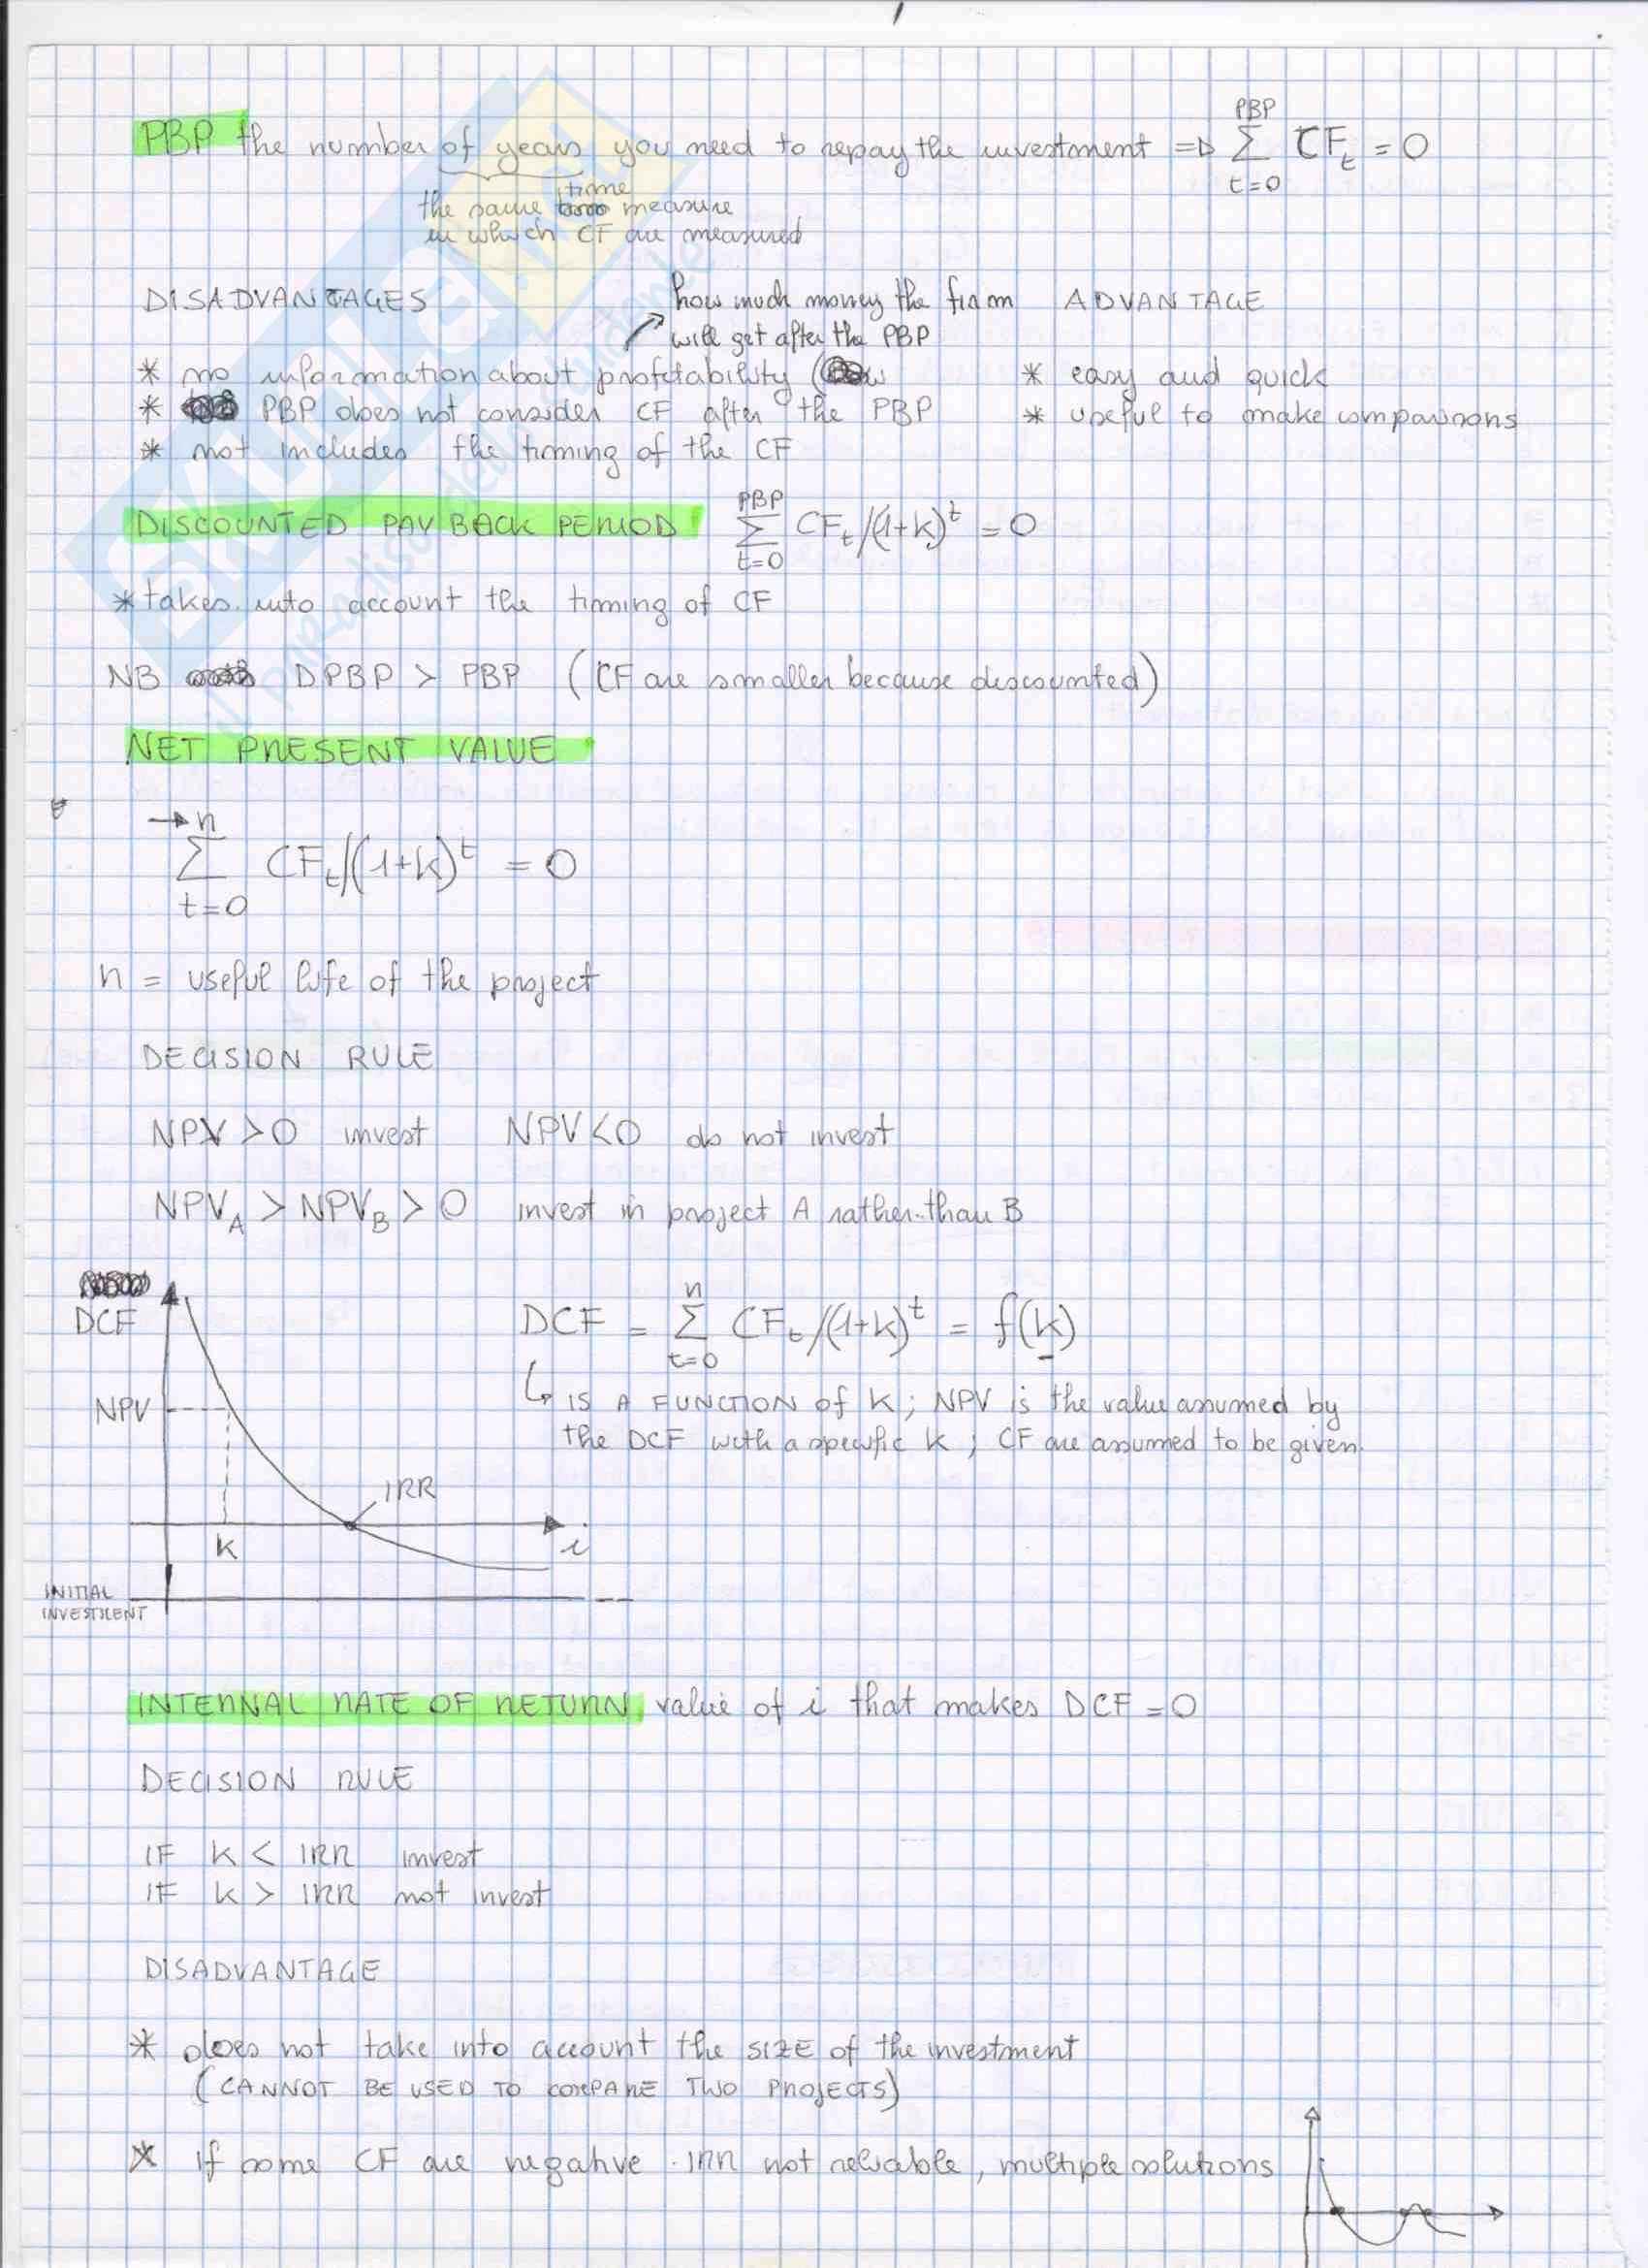 PBP the number of years you need to repay the investment => PBP Σ t=0 CFt = 0
the same time measure
in which CF are measured
DISADVANTAGES
how much money the firm
will get after the PBP
ADVANTAGE
* no information about profitability (
* easy and quick
* PBP does not consider CF after the PBP
* useful to make comparisons
* not includes the timing of the CF
DISCOUNTED PAY BACK PERIOD PBP Σ t=0 CFt/(1+k)^t = 0
* takes into account the timing of CF
NB DPBP > PBP (CF are smaller because discounted)
NET PRESENT VALUE
→ n Σ t=0 CFt/(1+k)^t = 0
n = useful life of the project
DECISION RULE
NPV > 0 invest NPV < 0 do not invest
NPV_A > NPV_B > 0 invest in project A rather than B
DCF
DCF = n Σ t=0 CFt/(1+k)^t = f(k)
↳ IS A FUNCTION of K; NPV is the value assumed by
the DCF with a specific K; CF are assumed to be given.
NPV
IRR
k
i
INITIAL
INVESTMENT
INTERNAL RATE OF RETURN value of i that makes DCF = 0
DECISION RULE
IF k < IRR invest
IF k > IRR not invest
DISADVANTAGE
* does not take into account the SIZE of the investment
(CANNOT BE USED TO COMPARE TWO PROJECTS)
* if some CF are negative IRR not reliable, multiple solutions